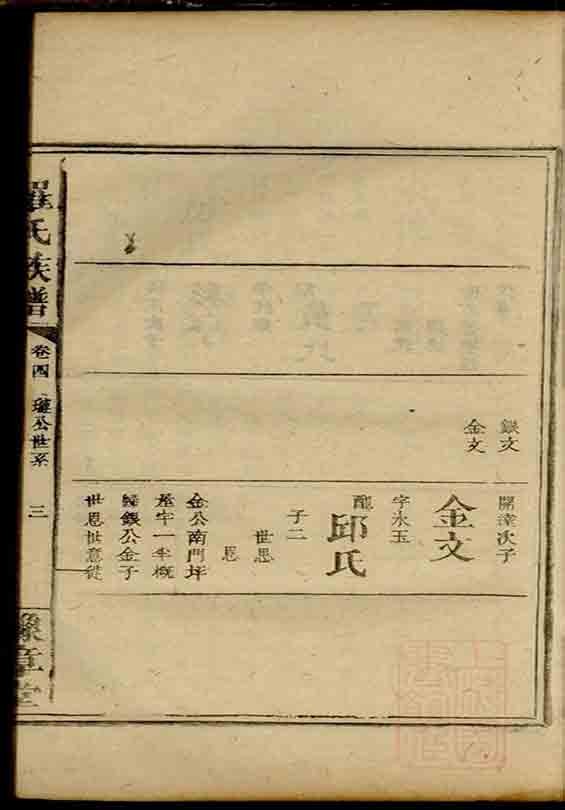 銀文
金文
開達次子
金文
字水玉
配
邱氏
子二
世思
思
金公南門坪
產宇一半概
歸銀公金子
世思世意從
羅氏族譜
卷四
璉公世系
三
豫章堂